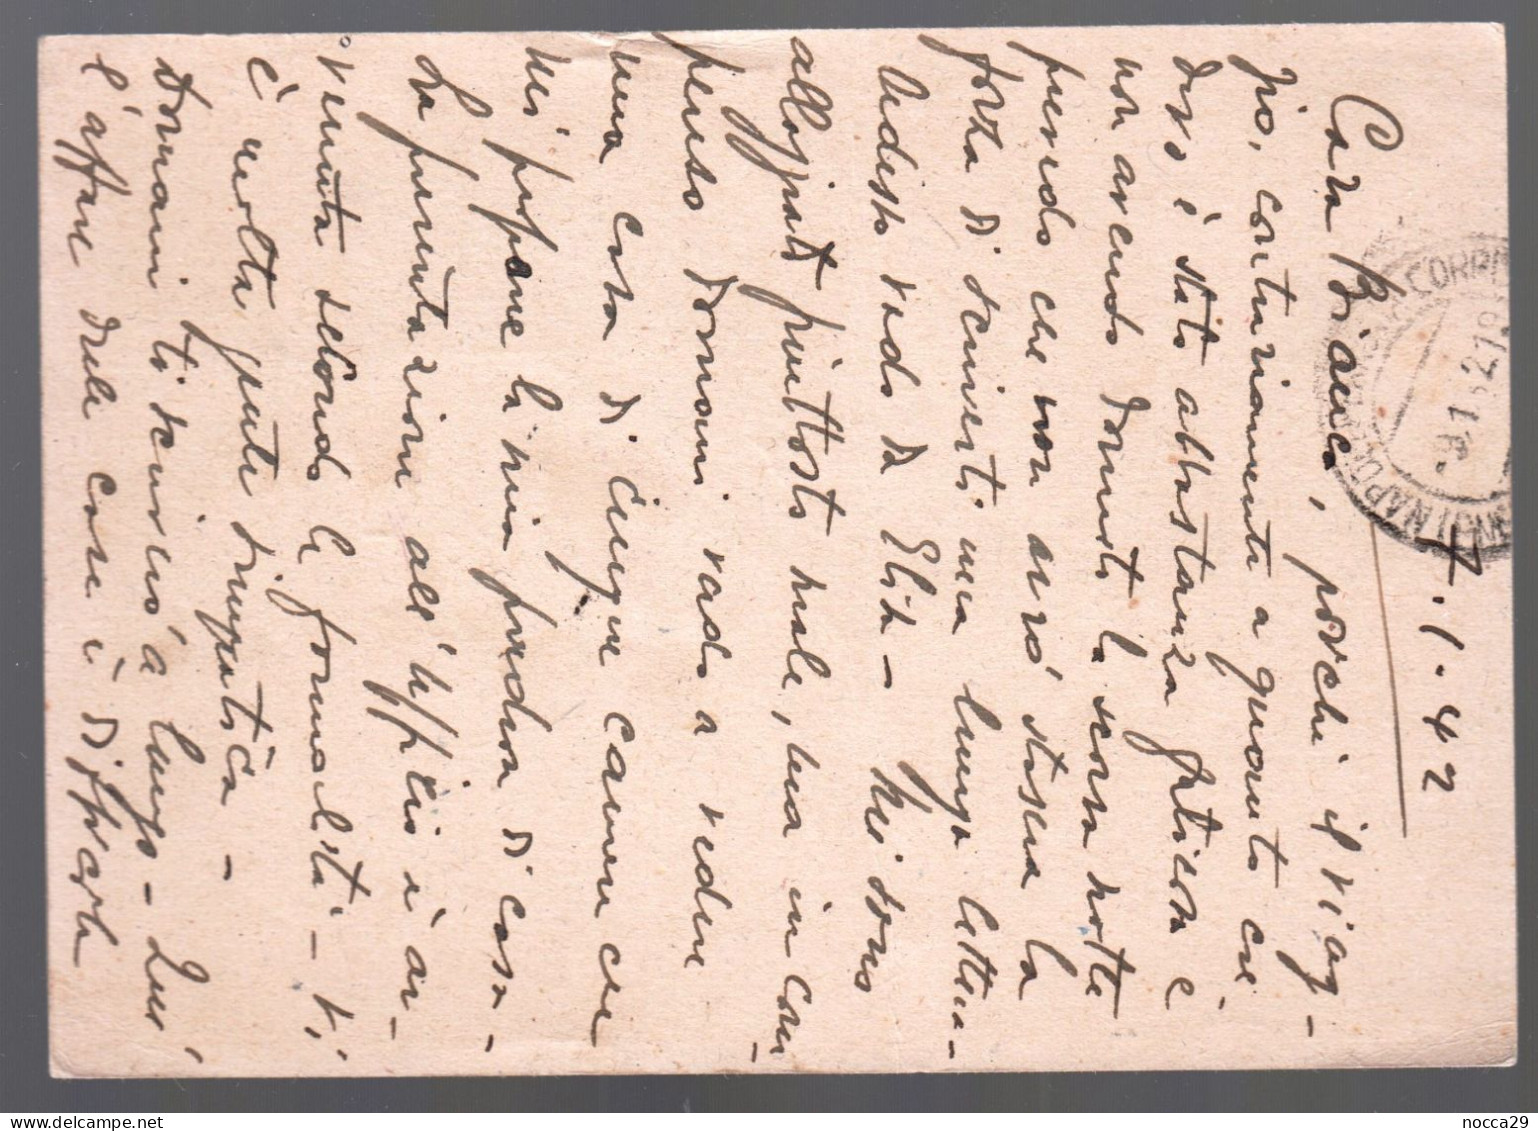 7.1.42
Cara Bianca, poiché il viag-
gio, contrariamente a quanto cre
devo è stato abbastanza faticoso e
non avendo dormito la scorsa notte
prevedo che non avrò stasera la
forza di scriverti una lunga lettera -
Adesso vado da Elia - Mi sono
alloggiato piuttosto male, ma in com-
penso domani vado a vedere
una casa di cinque camere che
mi propone la mia padrona di casa -
La presentazione all'ufficio è av-
venuta secondo le formalità - Vi
è molta gente simpatica -
Domani ti scriverò a lungo - Qui
l'affare delle case è difficile
CORRI
8.1.42 19
NAPOLI
nocca29